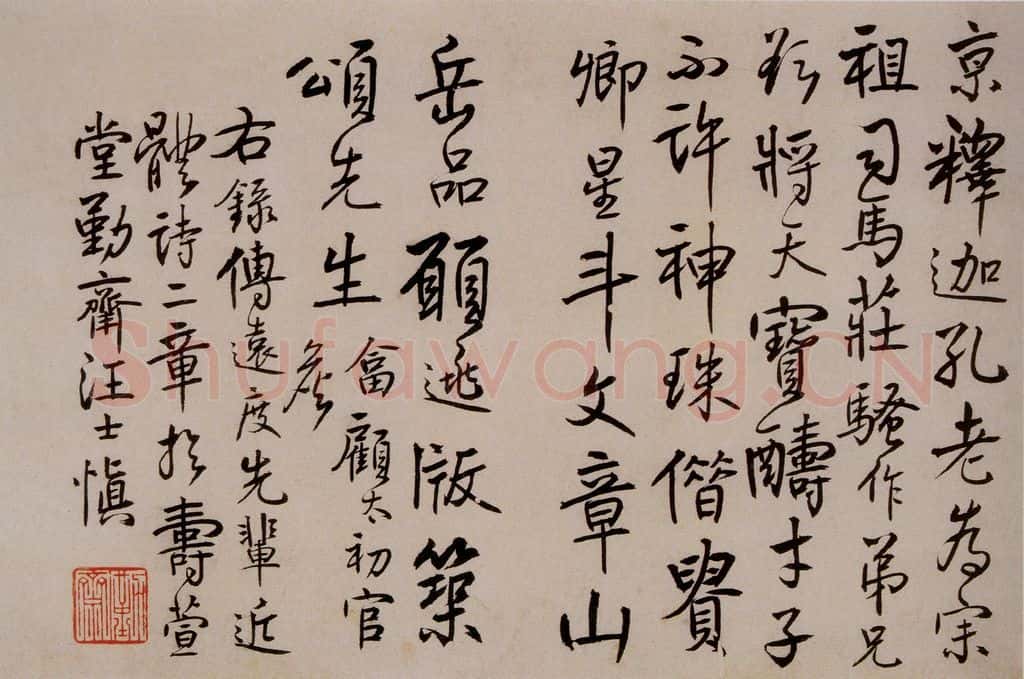 京釋迦孔老為宗
祖司馬莊騷作弟兄
將天寶醻才子
不許神珠僭
卿星斗文章山
岳品願逃版築
頌先生
畣顧太初官
詹
右錄傅遠度先輩近
體詩二章於壽萱
堂勤齋汪士慎
Shufawang.CN